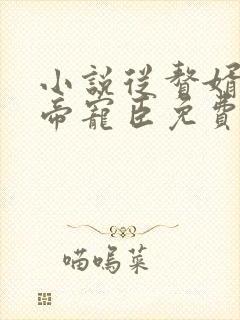 小説從贅婿
帝寵臣免費
喵嗚菜